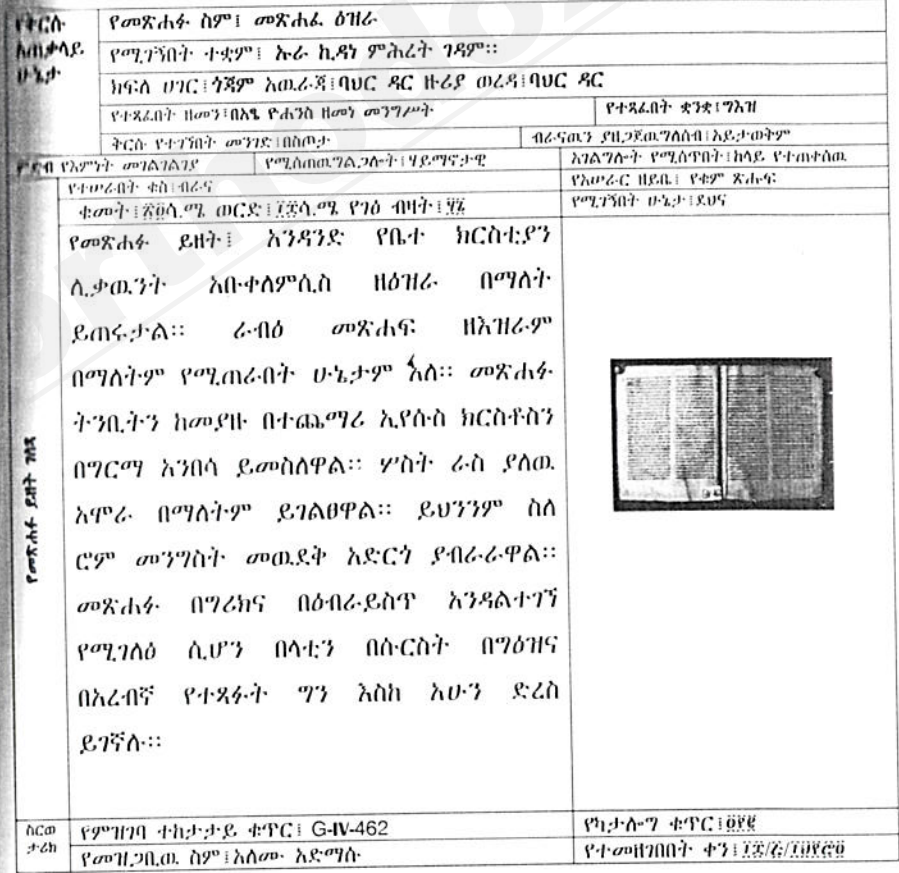 የቅርሱ አጠቃላይ ሁኔታ
የመጽሐፉ ስም፤ መጽሐፈ ዕዝራ
የሚገኝበት ተቋም፤ ኡራ ኪዳነ ምሕረት ገዳም፡፡
ክፍለ ሀገር፤ጎጃም አዉራጃ፤ባህር ዳር ዙሪያ ወረዳ፤ባህር ዳር
የተጻፈበት ዘመን፤በአፄ ዮሐንስ ዘመነ መንግሥት የተጻፈበት ቋንቋ፤ግእዝ
ቅርሱ የተገኘበት መንገድ፤በስጦታ ብራናዉን ያዘጋጀዉግለሰብ፤አይታወቅም
ምድብ የእምነት መገልገልገያ የሚሰጠዉግልጋሎት፤ሃይማኖታዊ አገልግሎት የሚሰጥበት፤ከላይ የተጠቀሰዉ
የተሠራበት ቁስ፤ብራና የአሠራር ዘይቤ፤ የቁም ጽሑፍ
ቁመት፤ ሳ.ሜ ወርድ፤ ሳ.ሜ የገፅ ብዛት፤ የሚገኝበት ሁኔታ፤ደህና
የመጽሐፉ ይዘት ገጽ
የመጽሐፉ ይዘት፤ አንዳንድ የቤተ ክርስቲያን
ሊቃዉንት አቡቀለምሲስ ዘዕዝራ በማለት
ይጠሩታል፡፡ ራብዕ መጽሐፍ ዘእዝራም
በማለትም የሚጠራበት ሁኔታም አለ፡፡ መጽሐፉ
ትንቢትን ከመያዙ በተጨማሪ ኢየሱስ ክርስቶስን
በግርማ አንበሳ ይመስለዋል፡፡ ሦስት ራስ ያለዉ
አሞራ በማለትም ይገልፀዋል፡፡ ይህንንም ስለ
ሮም መንግስት መዉደቅ አድርጎ ያብራራዋል፡፡
መጽሐፉ በግሪክና በዕብራይስጥ እንዳልተገኘ
የሚገለፅ ሲሆን በላቲን በሱርስት በግዕዝና
በአረብኛ የተጻፉት ግን እስከ አሁን ድረስ
ይገኛሉ፡፡
ስርወ ታሪክ
የምዝገባ ተከታታይ ቁጥር፤ G-IV-462 የካታሎግ ቁጥር፤
የመዝጋቢዉ ስም፤አለሙ አድማሱ የተመዘገበበት ቀን፤